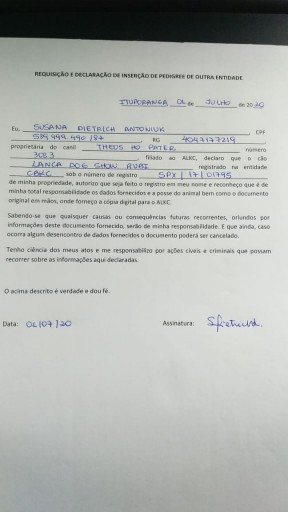 REQUISIÇÃO E DECLARAÇÃO DE INSERÇÃO DE PEDIGREE DE OUTRA ENTIDADE
ITUPORANGA, 01 de JULHO de 2020
Eu, SUSANA DIETRICH ANTONIUK CPF
589.999.490/87 RG 4047177219
proprietária do canil THEOS HO PATER número
3053 filiado ao ALKC, declaro que o cão
LANCA DOG SHOW RUBI registrado na entidade
CBKC sob o número de registro SPX/17/01795
de minha propriedade, autorizo que seja feito o registro em meu nome e reconheço que é de
minha total responsabilidade os dados fornecidos e a posse do animal bem como o documento
original em mãos, onde forneço a cópia digital para o ALKC.
Sabendo-se que quaisquer causas ou consequências futuras recorrentes, oriundos por
informações deste documento fornecido, serão de minha responsabilidade. E que ainda, caso
ocorra algum desencontro de dados fornecidos o documento poderá ser cancelado.
Tenho ciência dos meus atos e me responsabilizo por ações cíveis e criminais que possam
recorrer sobre as informações aqui declaradas.
O acima descrito é verdade e dou fé.
Data: 01/07/20 Assinatura: